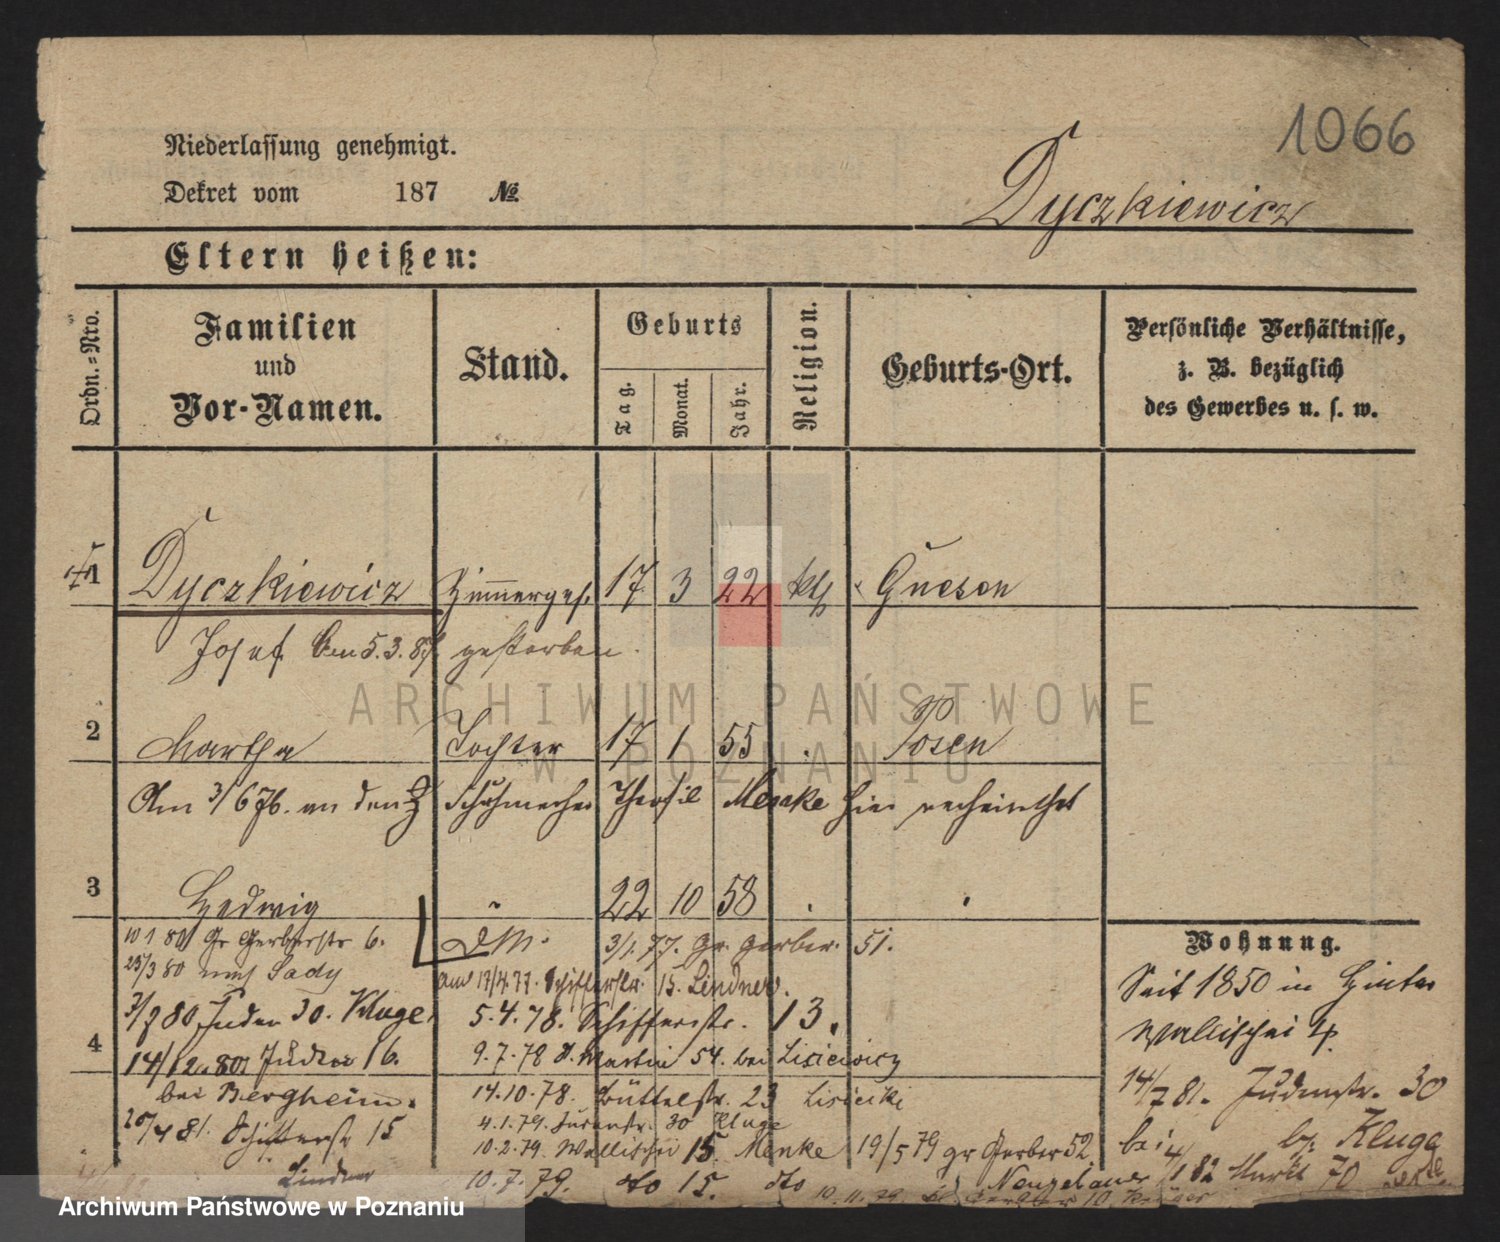 1066
Niederlassung genehmigt.
Dekret vom 187 №
Dyczkiewicz
Eltern heißen:
Ordn.-Nro.
Familien
und
Vor-Namen.
Stand.
Geburts
Tag.
Monat.
Jahr.
Religion.
Geburts-Ort.
Persönliche Verhältnisse,
z. B. bezüglich
des Gewerbes u. s. w.
1 Dyczkiewicz Zimmerges. 17 3 22 kth Gnesen
Josef Am 5.3. gestorben.
ARCHIWUM PAŃSTWOWE
W POZNANIU
2 Martha Tochter 17 1 55 Posen
Am 3/6 76. an den Schuhmacher Theofil Menke hier verheirathet
3 Hedwig 22 10 58
Wohnung.
10 1 80 Gr Gerberstr 6. 3/1. 77. Gr. Gerber. 51.
25/3 80 nach
Am 17/4. 77. Schifferstr. 15. Lindner.
Seit 1850 in Hinter
Wallischei
3/7 80 Juden 30. Kluge. 5. 4. 78. Schifferstr. 13.
4
14/12. 80 Juden 16. 9. 7. 78 S. Martin 54. bei Lisiewicz
bei Bergheim. 14. 10. 78. Büttelstr. 23
14/7 81. Judenstr. 30
20/4 81. Schifferstr 15 4. 1. 79. Judenstr. 30 Kluge
bei Kluge
10. 2. 79. Wallischei 15. Menke 19/5 79 gr Gerber 52
Lindner 10. 7. 79. dto 15. dto
Neugebauer
82 Markt 70
10. 11. 79
Archiwum Państwowe w Poznaniu